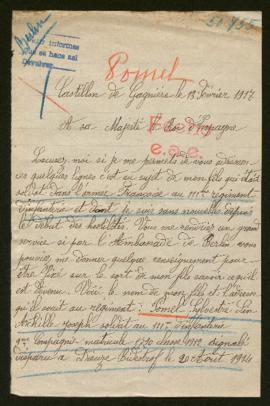 51.955
Berlin
Pomel
Castillon de Gagnière le 13 Février 1917
A sa Majesté le Roi d'Espagne
Excusez moi si je me permets de vous adresser
ces quelques lignes c'est au sujet de mon fils qui était
soldat dans l'armée Française au 111me régiment
d'infanterie et dont je suis sans nouvelles depuis
le début des hostilités. Vous me rendriez un grand
service si par l'Ambassade de Berlin vous
pouviez me donner quelque renseignement pour
être fixé sur le sort de mon fils savoir ce qu'il
est devenu. Voici le nom de mon fils et l'adresse
qu'il avait au régiment : Pomel Sylvestre
Achille Joseph soldat au 111me d'infanterie
Compagnie matricule 1710 classe 1912 signalé
disparu à Dieuze Bidestrof le 20 Août 1914